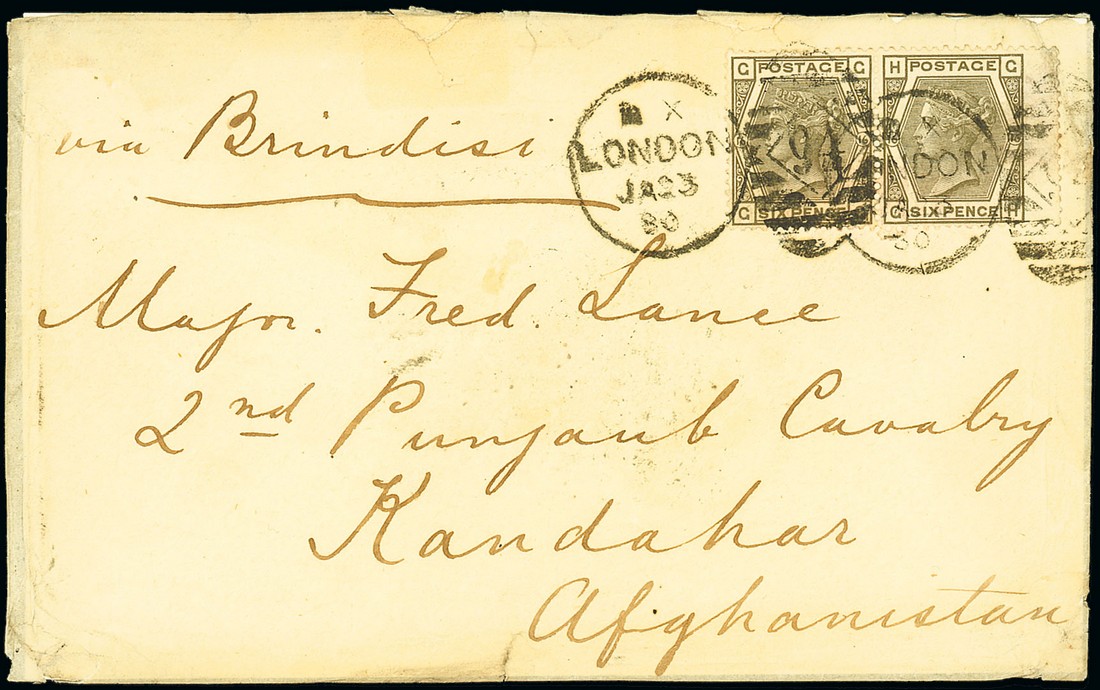 via Brindisi
Major. Fred. Lance
2nd Punjaub Cavalry
Kandahar
Afghanistan
X
LONDON
JA23
80
G POSTAGE G
G SIX PENCE G
H POSTAGE G
G SIX PENCE H
80